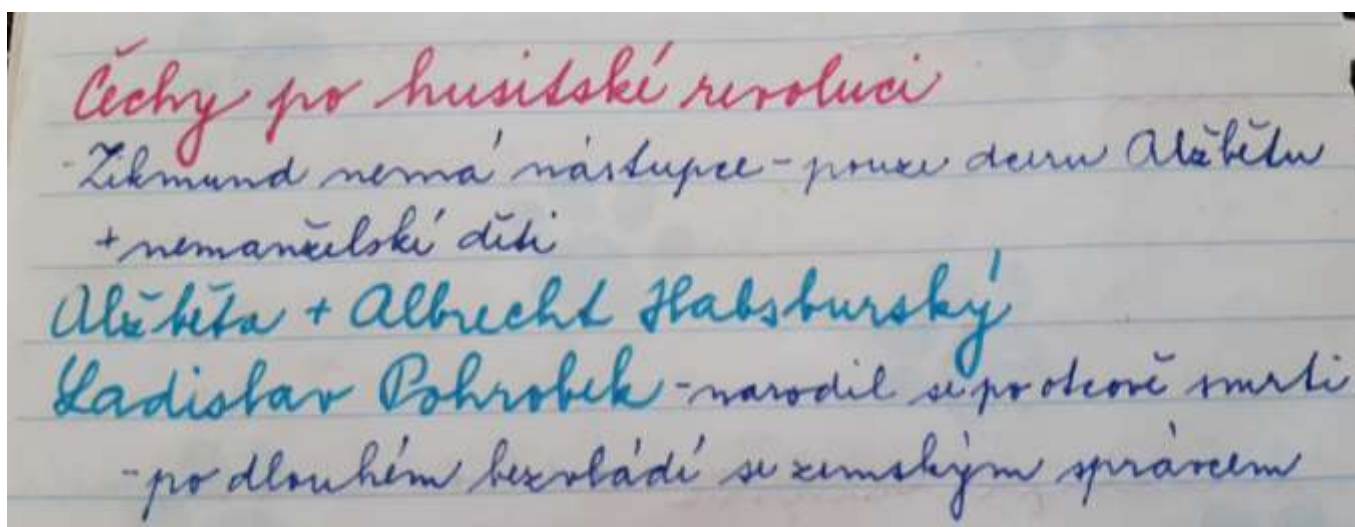 Čechy po husitské revoluci
- Zikmund nemá nástupce - pouze dceru Alžbětu
+ nemanželské děti
Alžběta + Albrecht Habsburský
Ladislav Pohrobek - narodil se po otcově smrti
- po dlouhém bezvládí se zemským správcem